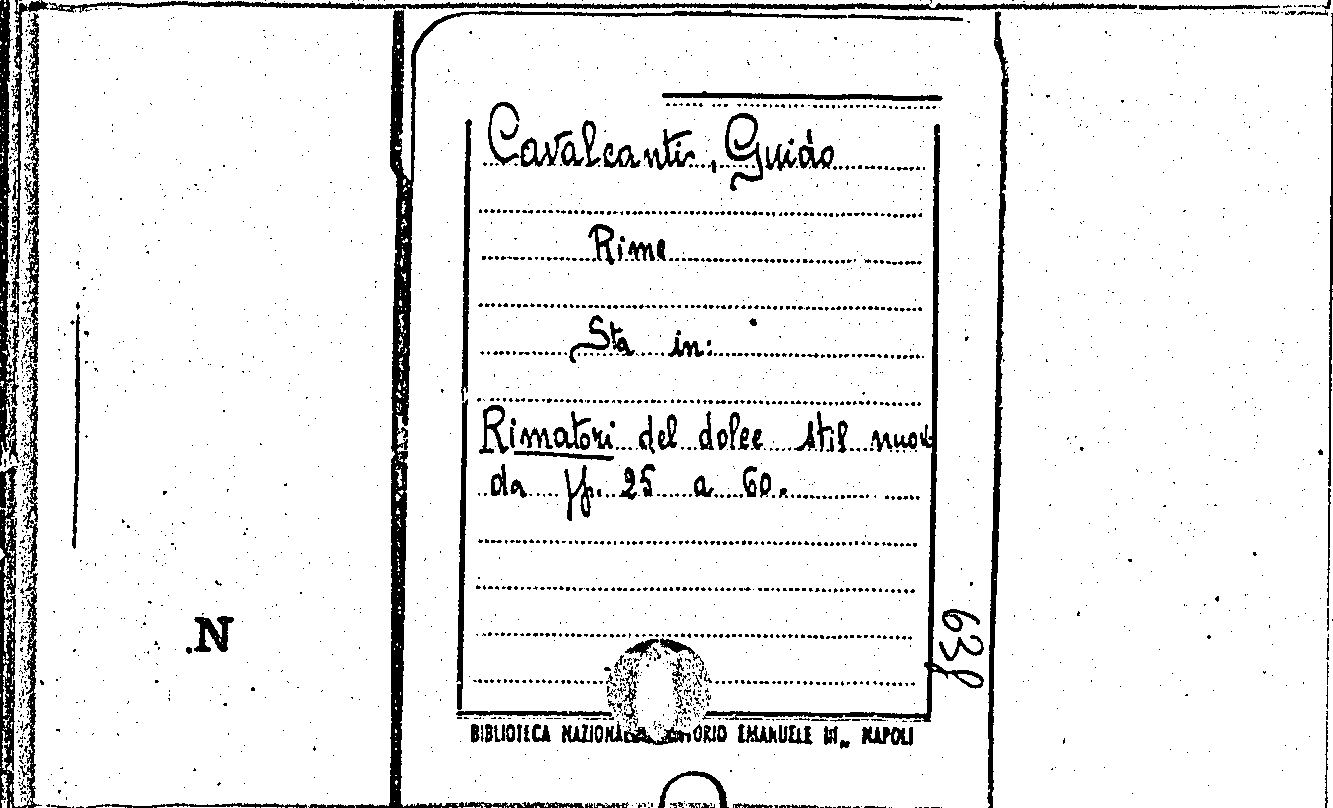 Cavalcanti, Guido
Rime
Sta in:
Rimatori del dolce stil nuovo
da pp. 25 a 60.
BIBLIOTECA NAZIONALE VITTORIO EMANUELE III„ NAPOLI
.N